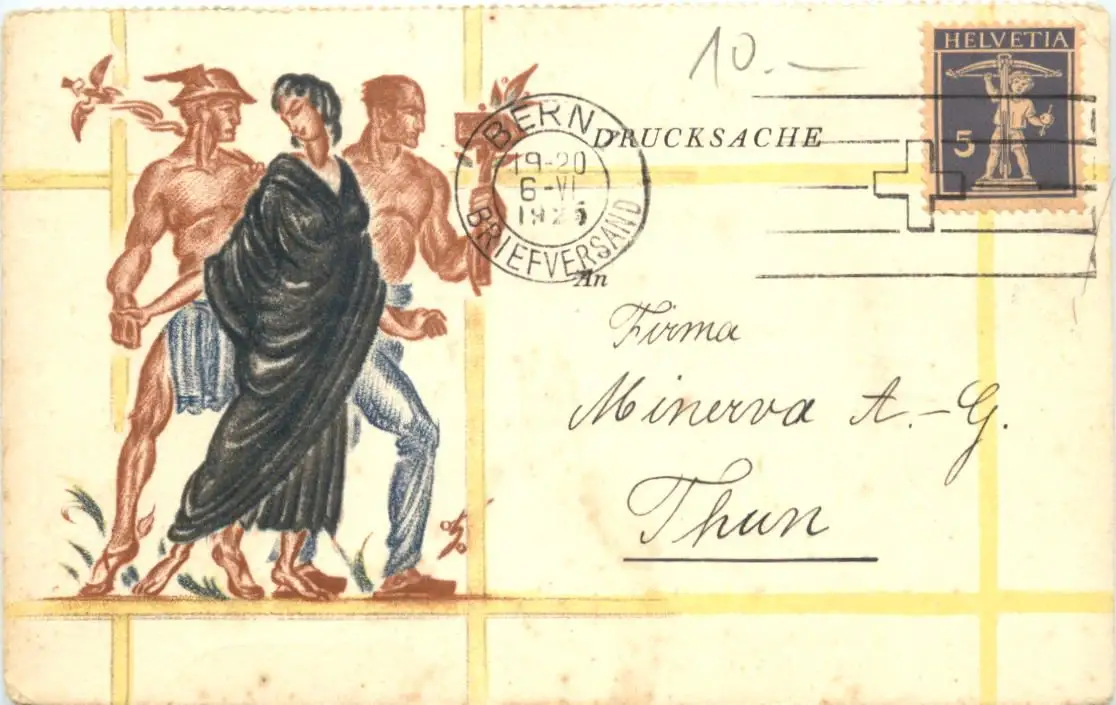 10.-
HELVETIA
5
DRUCKSACHE
BERN
19-20
6-VI.
BRIEFVERSAND
An
Firma
Minerva A.-G.
Thun